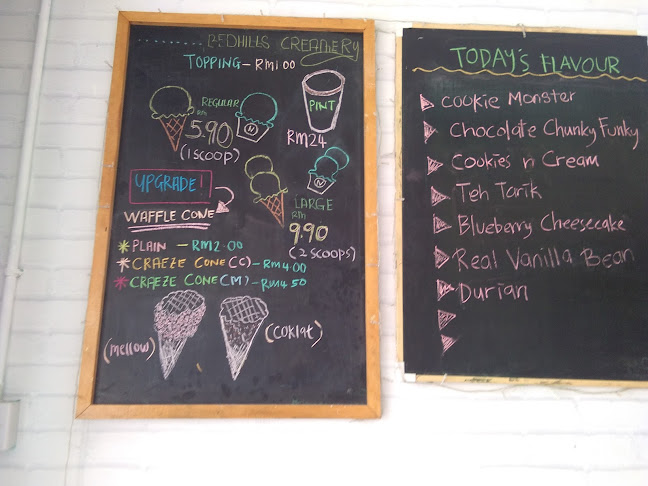 REDHILLS CREAMERY
TOPPING - RM1.00
REGULAR
RM
5.90
(1 SCOOP)
PINT
RM24
UPGRADE!
WAFFLE CONE
LARGE
RM
9.90
(2 SCOOPS)
PLAIN - RM2.00
CRAEZE CONE (C) - RM4.00
CRAEZE CONE (M) - RM4.50
(mellow)
(coklat)
TODAY'S FLAVOUR
Cookie Monster
Chocolate Chunky Funky
Cookies n Cream
Teh Tarik
Blueberry Cheesecake
Real Vanilla Bean
Durian